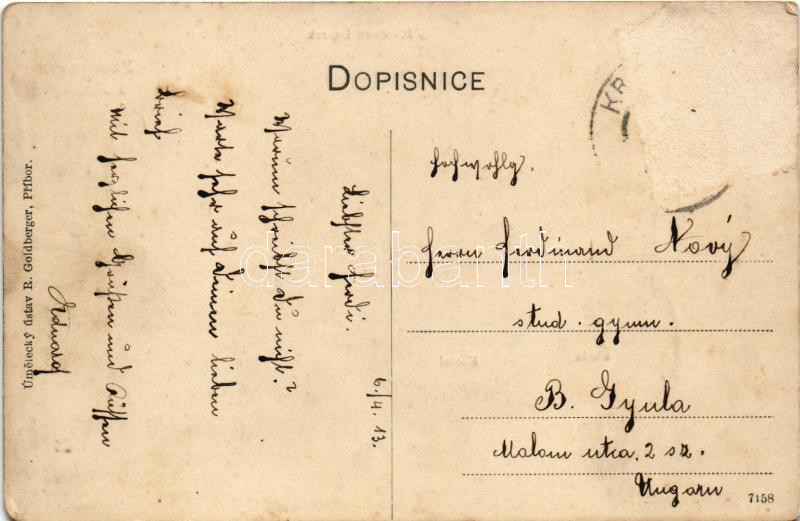 DOPISNICE
KR
6./4. 13.
Liebster Ferdi.
Warum schreibst Du nicht?
Warte sehr auf Deinen lieben
Brief
Mit herzlichen Grüßen und Küssen
Eduard
Hochwohlg.
Herrn Ferdinand Nový
stud. gymn.
B. Gyula
Malom utca. 2 sz.
Ungarn
Umělecký ústav R. Goldberger, Příbor.
7158
darabanth